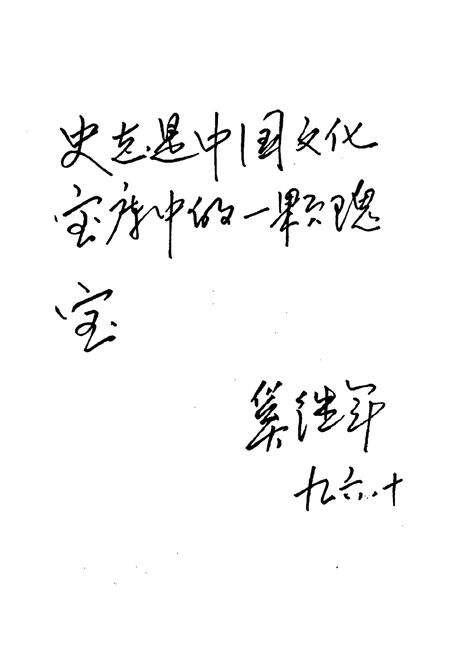 史志是中国文化
宝库中的一颗瑰
宝
继军
九六.十